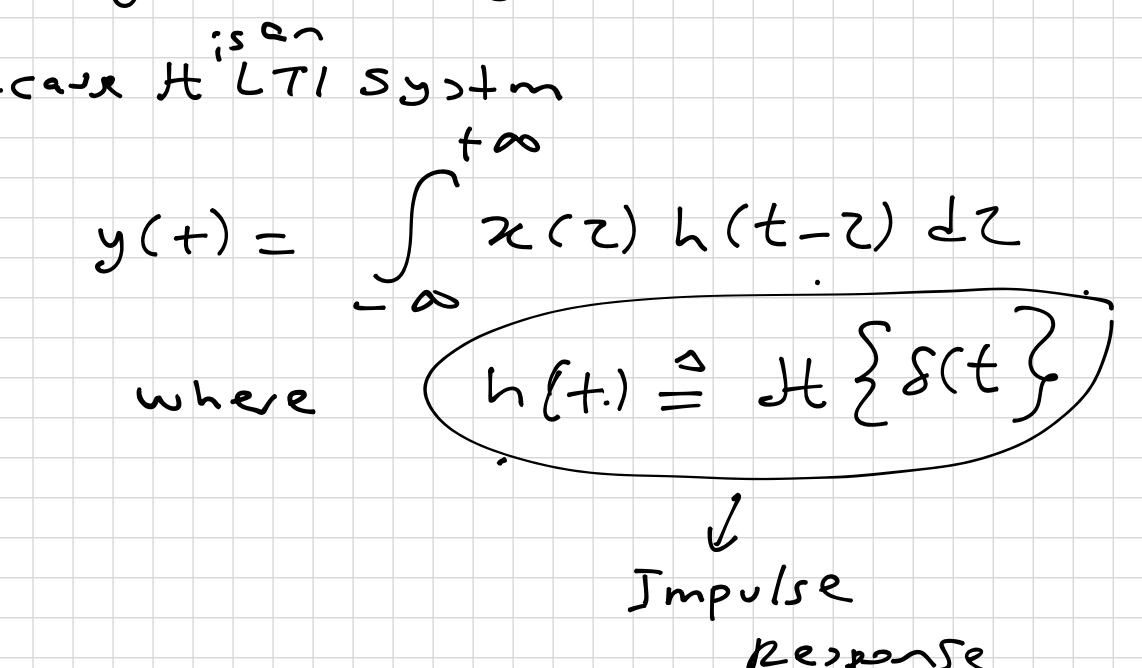 is an
case H LTI System
y(t) = ∫_{-∞}^{+∞} x(τ) h(t-τ) dτ
where h(t) ≜ H {δ(t}
Impulse
Response